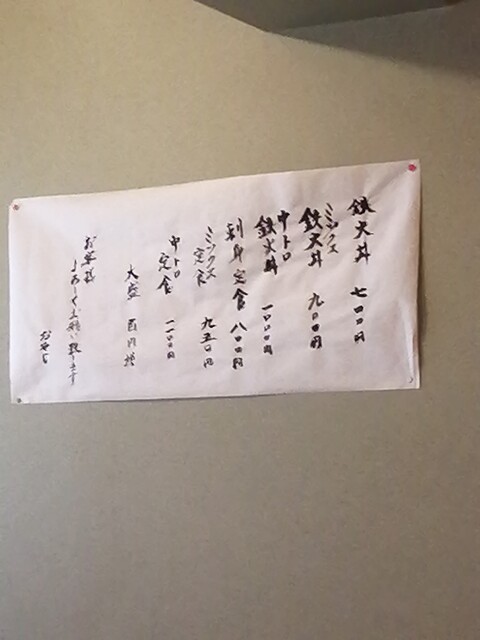 鉄火丼 七〇〇円
ミックス
鉄火丼 九〇〇円
中トロ
鉄火丼 一〇〇〇円
刺身定食 八〇〇円
ミックス
定食 九五〇円
中トロ
定食 一一〇〇円
大盛 百円増
お客様
よろしくお願い致します